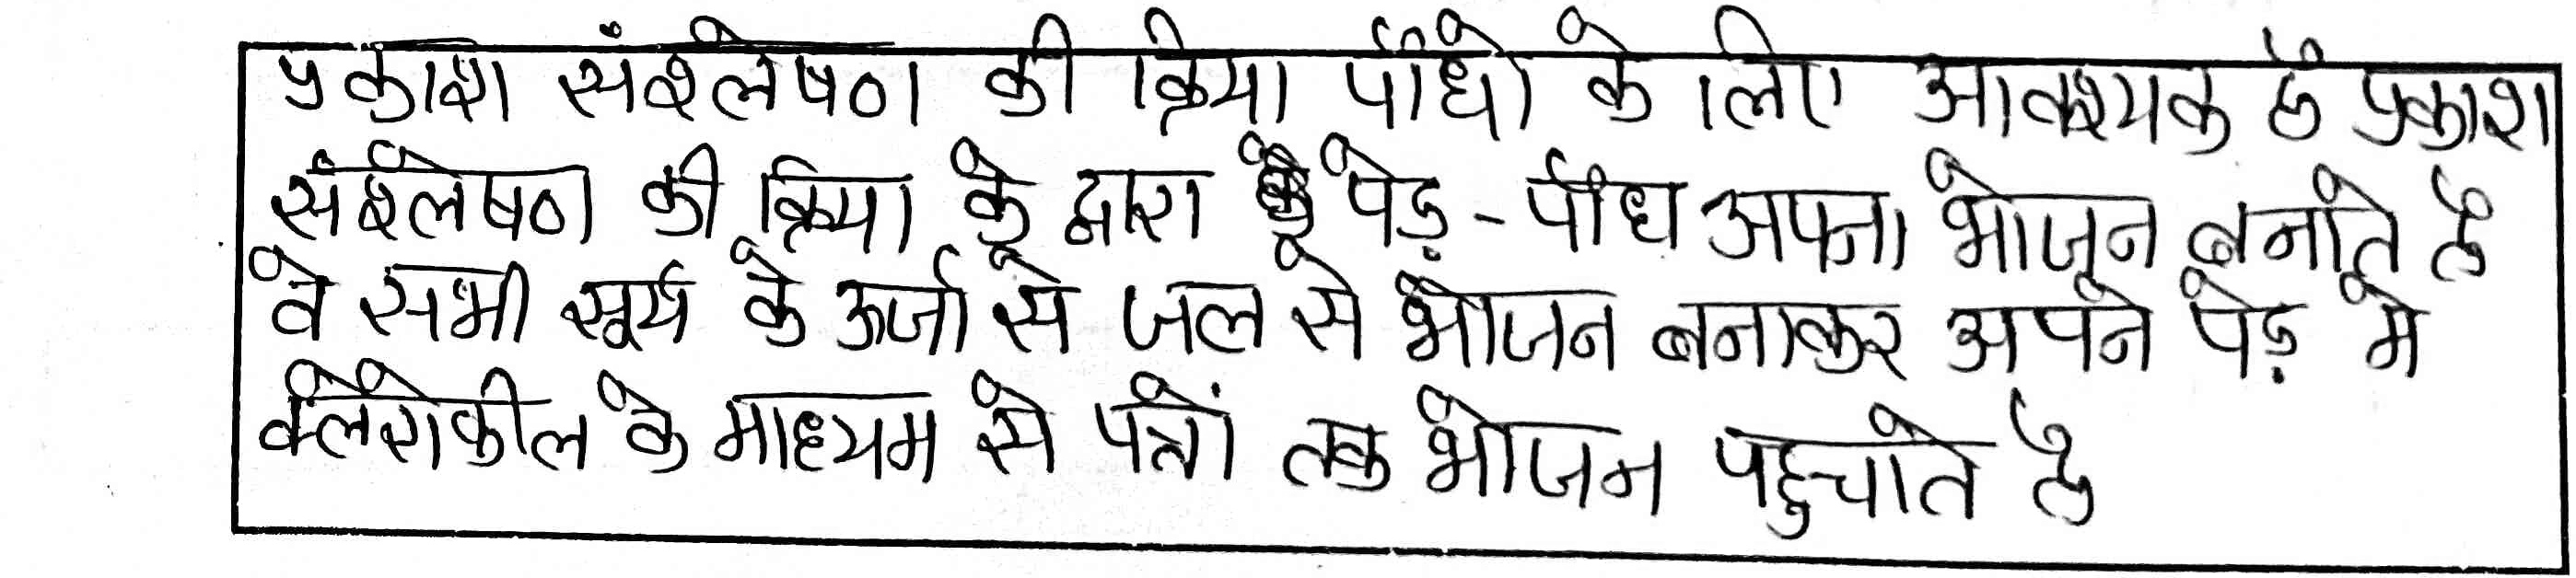 प्रकाश संश्लेषण की क्रिया पौधो के लिए आवश्यक है प्रकाश
संश्लेषण की क्रिया के द्वारा पेड़ - पौधे अपना भोजन बनाते है
वे सभी सूर्य के ऊर्जा से जल से भोजन बनाकर अपने पेड़ मे
क्लोरोफील के माध्यम से पत्तों तक भोजन पहुचाते है